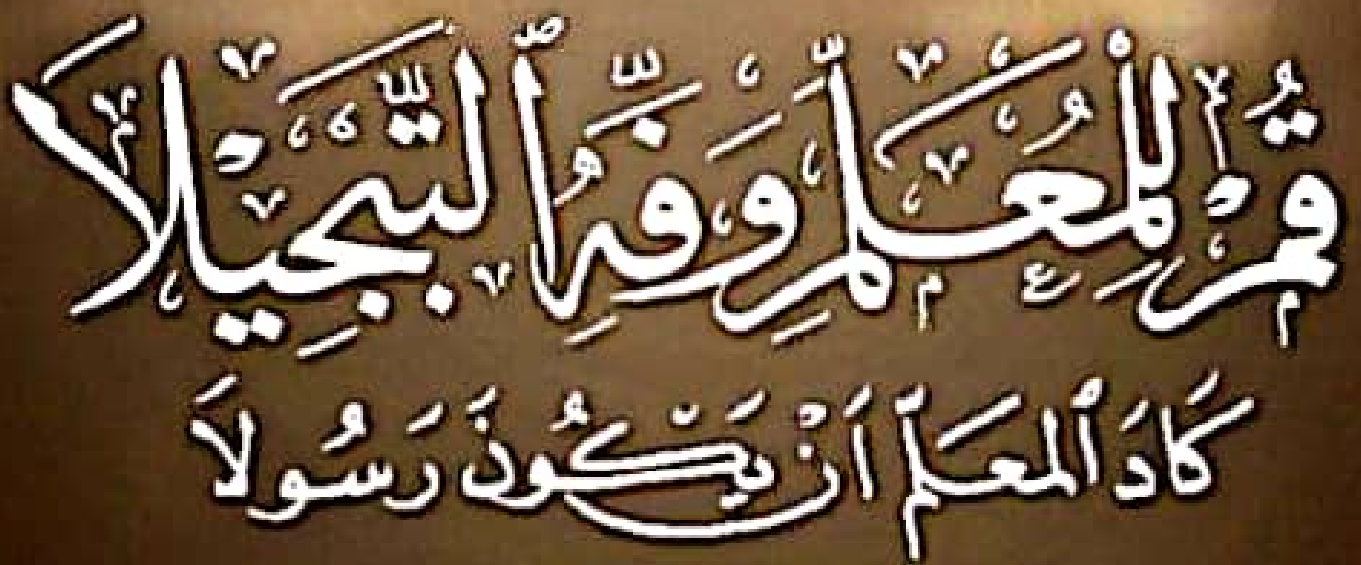 قُمْ لِلْمُعَلِّمِ وَفِّهِ ٱلتَّبْجِيْلَا
كَادَ ٱلْمُعَلِّمُ أَنْ يَكُونَ رَسُولَا